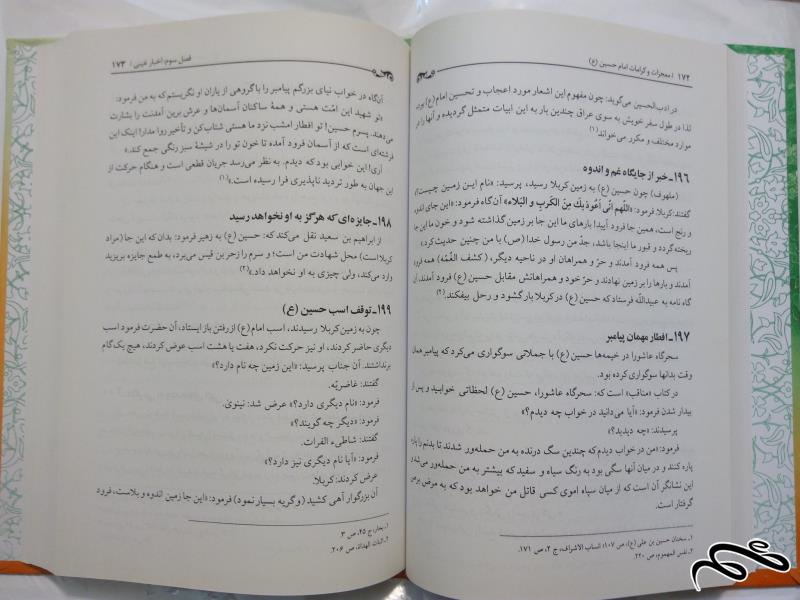 ۱۷۲ / معجزات و کرامات امام حسین (ع)
در ادب‌الحسین می‌گوید: چون مفهوم این اشعار مورد اعجاب و تحسین امام (ع) بوده
لذا در طول سفر خویش به سوی عراق چندین بار به این ابیات متمثل گردیده و آنها را در
موارد مختلف و مکرر می‌خواند.(۱)
۱۹۶ـ خبر از جایگاه غم و اندوه
(ملهوف) چون حسین (ع) به زمین کربلا رسید، پرسید: «نام این زمین چیست؟»
گفتند: کربلا فرمود: «اللّهم انّی اَعُوذبِكَ مِنَ الکَربِ وَ البَلاء» آنگاه فرمود: «این جای اندوه
و رنج است، همین جا فرود آیید! بارهای ما این جا بر زمین گذاشته شود و خون ما این جا
ریخته گردد و قبور ما اینجا باشد، جدّ من رسول خدا (ص) با من چنین حدیث کرد.»
پس همه فرود آمدند و حرّ و همراهان او در ناحیه دیگر، (کشف الغُمّه) همه فرود
آمدند و بارها را بر زمین نهادند و حرّ خود و همراهانش مقابل حسین (ع) فرود آمدند، آن
گاه نامه به عبیدالله فرستاد که حسین (ع) در کربلا بار گشود و رحل بیفکند.(۲)
۱۹۷ـ افطار مهمان پیامبر
سحرگاه عاشورا در خیمه‌ها حسین (ع) با جملاتی سوگواری می‌کرد که پیامبر همان
وقت بدانها سوگواری کرده بود.
در کتاب «مناقب» است که: سحرگاه عاشورا، حسین (ع) لحظاتی خوابید و پس از
بیدار شدن فرمود: «آیا می‌دانید در خواب چه دیدم؟»
پرسیدند: «چه دیدید؟»
فرمود: «من در خواب دیدم که چندین سگ درنده به من حمله‌ور شدند تا بدنم را پاره
پاره کنند و در میان آنها سگی بود به رنگ سیاه و سفید که بیشتر به من حمله‌ور می‌شد
این نشانگر آن است که از میان سپاه اموی کسی قاتل من خواهد بود که به مرض برص
گرفتار است.
۱ـ سخنان حسین بن علی (ع)، ص ۱۰۷؛ انساب الاشراف، ج ۲، ص ۱۷۱.
۲ـ نفس المهموم، ص ۲۲۰.
فصل سوم: اخبار غیبی / ۱۷۳
آنگاه در خواب نیای بزرگم پیامبر را با گروهی از یاران او نگریستم که به من فرمود:
«تو شهید این امّت هستی و همهٔ ساکنان آسمان‌ها و عرش برین آمدنت را بشارت
می‌دهند. پسرم حسین! تو افطار امشب نزد ما هستی شتاب کن و تأخیر روا مدار! اینک این
فرشته‌ای که از آسمان فرود آمده تا خون تو را در شیشهٔ سبز رنگی جمع کند.»
آری! این خوابی بود که دیدم. به نظر می‌رسد جریان قطعی است و هنگام حرکت از
این جهان به طور تردید ناپذیری فرا رسیده است.»(۱)
۱۹۸ـ جایزه‌ای که هرگز به او نخواهد رسید
از ابراهیم بن سعید نقل می‌کند که: حسین (ع) به زهیر فرمود: بدان که این جا (مراد
کربلا است) محل شهادت من است؛ و سرم را زحر بن قیس می‌برد، به طمع جایزه بر یزید
وارد می‌کند، ولی چیزی به او نخواهد داد.»(۲)
۱۹۹ـ توقف اسب حسین (ع)
چون به زمین کربلا رسیدند، اسب امام (ع) از رفتن باز ایستاد، آن حضرت فرمود اسب
دیگری حاضر کردند، او نیز حرکت نکرد، هفت یا هشت اسب عوض کردند، هیچ یک گام
برنداشتند. آن جناب پرسید: «این زمین چه نام دارد؟»
گفتند: غاضریّه.
فرمود: «نام دیگری دارد؟» عرض شد: نینویٰ.
فرمود: «دیگر چه گویند؟»
گفتند: شاطیء الفرات.
فرمود: «آیا نام دیگری نیز دارد؟»
عرض کردند: کربلا.
آن بزرگوار آهی کشید (و گریه بسیار نمود) فرمود: «این جا زمین اندوه و بلاست، فرود
۱ـ بحار، ج ۲۵، ص ۳.
۲ـ اثبات الهداة، ص ۲۰۶.